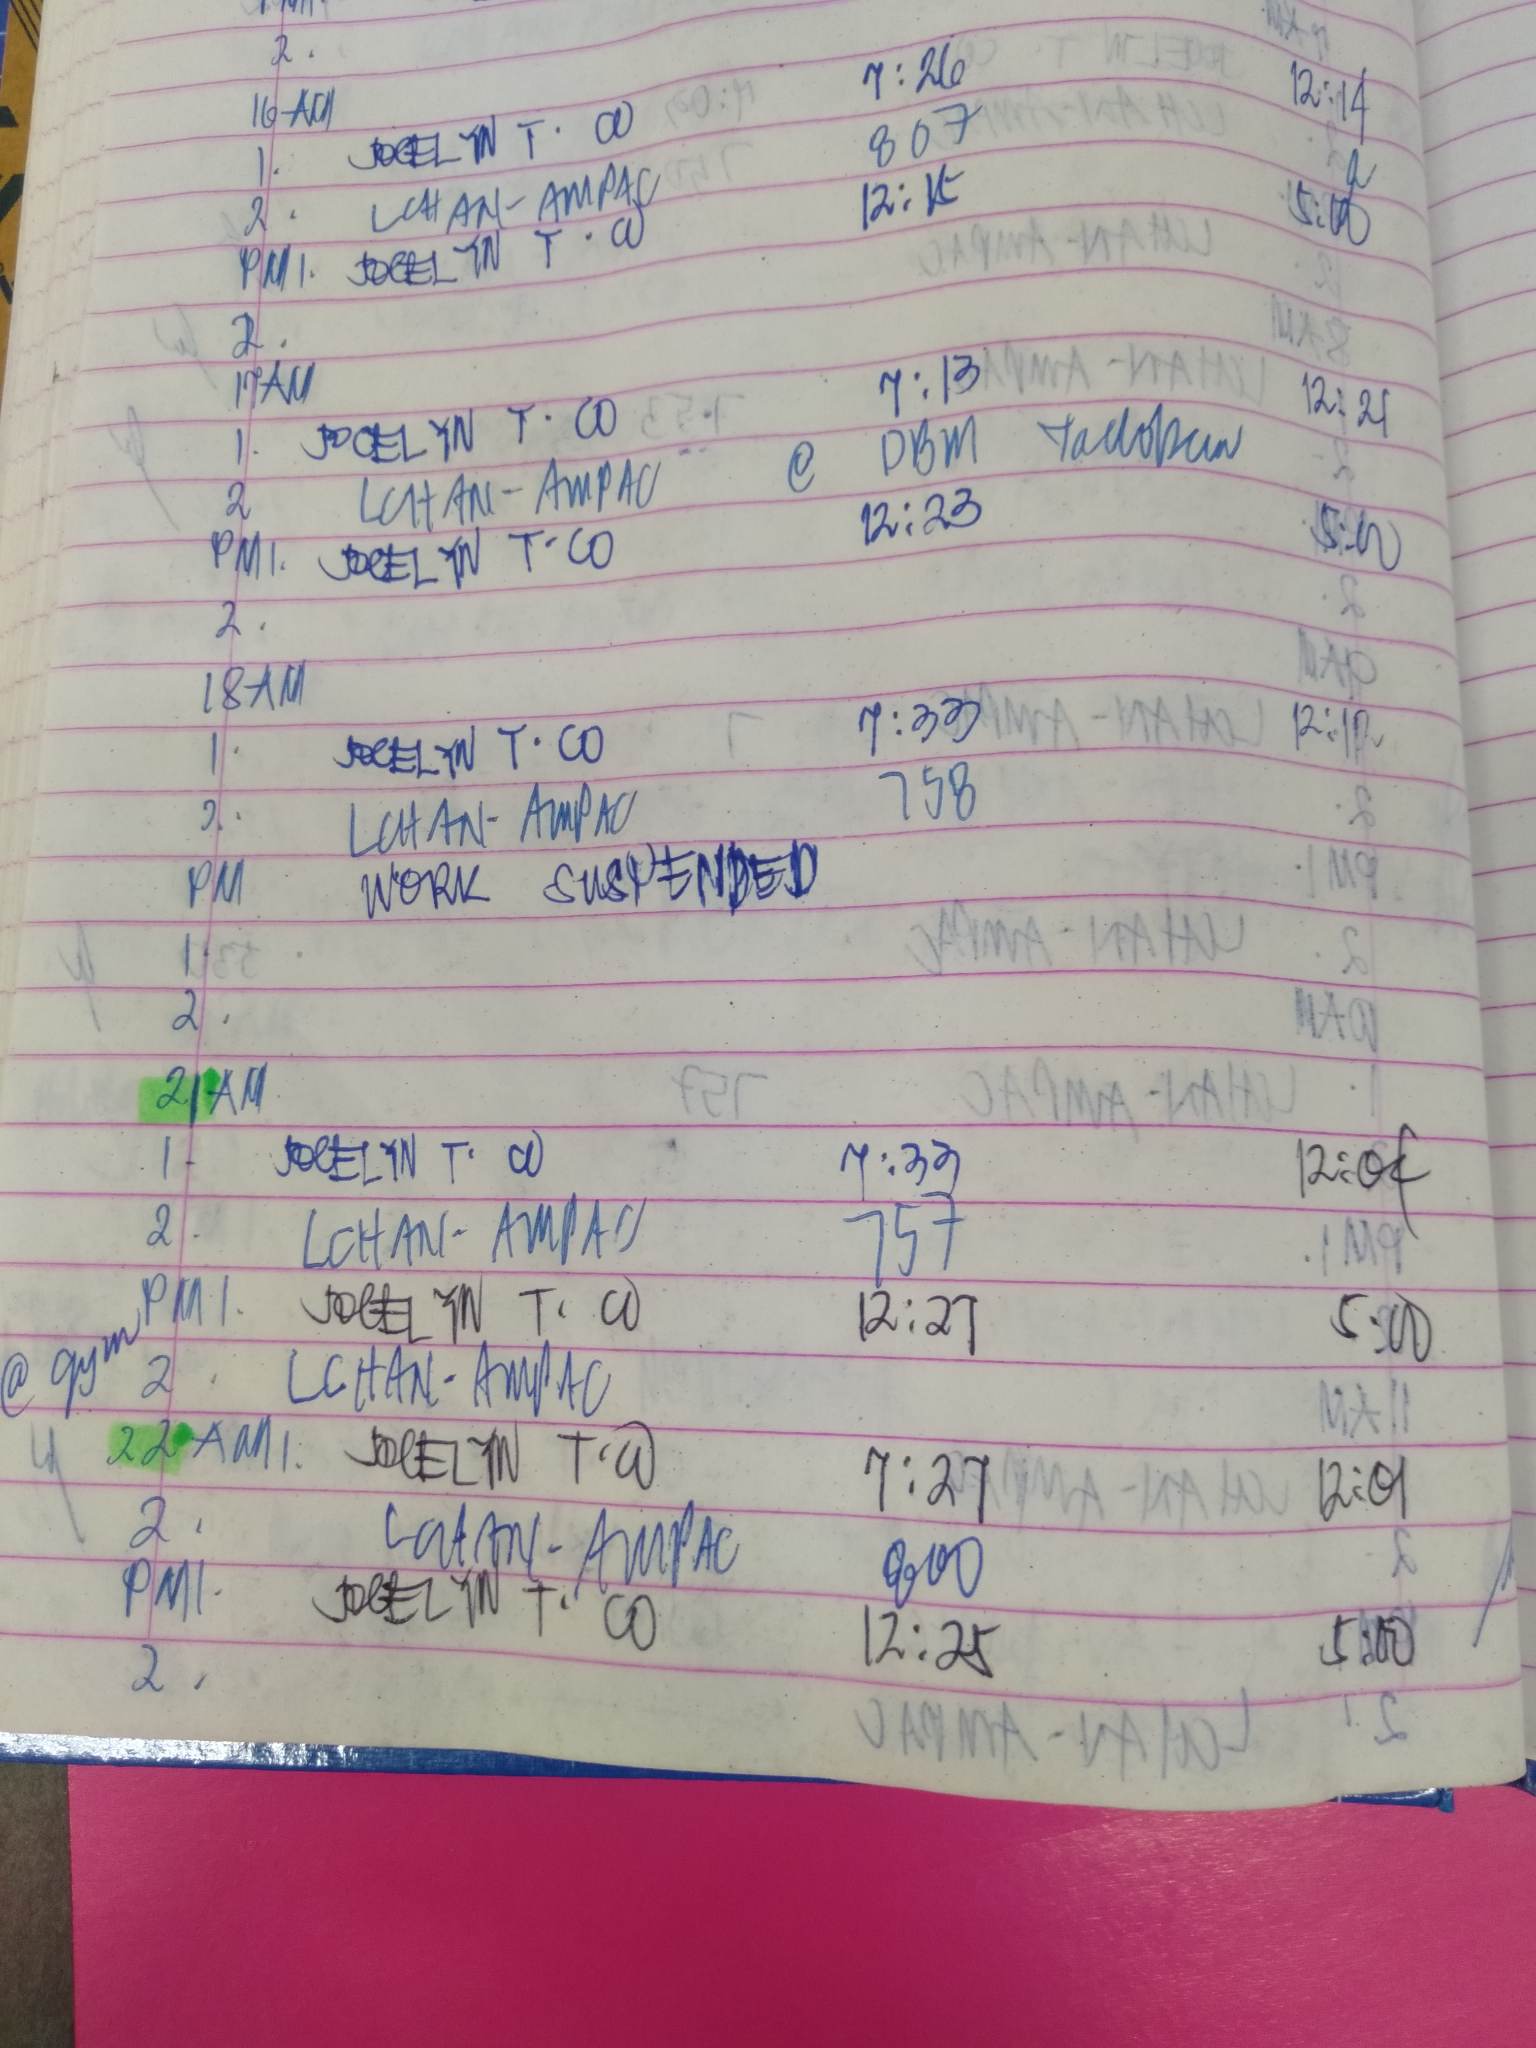 2.
16 AM
1. JOCELYN T. CO 7:26 12:14
2. LCHAN-AMPAC 807
PM 1. JOCELYN T. CO 12:15 5:00
2.
17 AM
1. JOCELYN T. CO 7:13 12:21
2 LCHAN-AMPAC @ DBM Tacloban
PM 1. JOCELYN T. CO 12:23 5:00
2.
18 AM
1. JOCELYN T. CO 7:33 12:12
2. LCHAN-AMPAC 758
PM WORK SUSPENDED
1.
2.
21 AM
1- JOCELYN T. CO 7:33 12:04
2. LCHAN-AMPAC 757
PM 1. JOCELYN T. CO 12:27 5:00
@ gym 2. LCHAN-AMPAC
22 AM 1. JOCELYN T. CO 7:27 12:01
2. LCHAN-AMPAC 800
PM 1. JOCELYN T. CO 12:25 5:00
2.